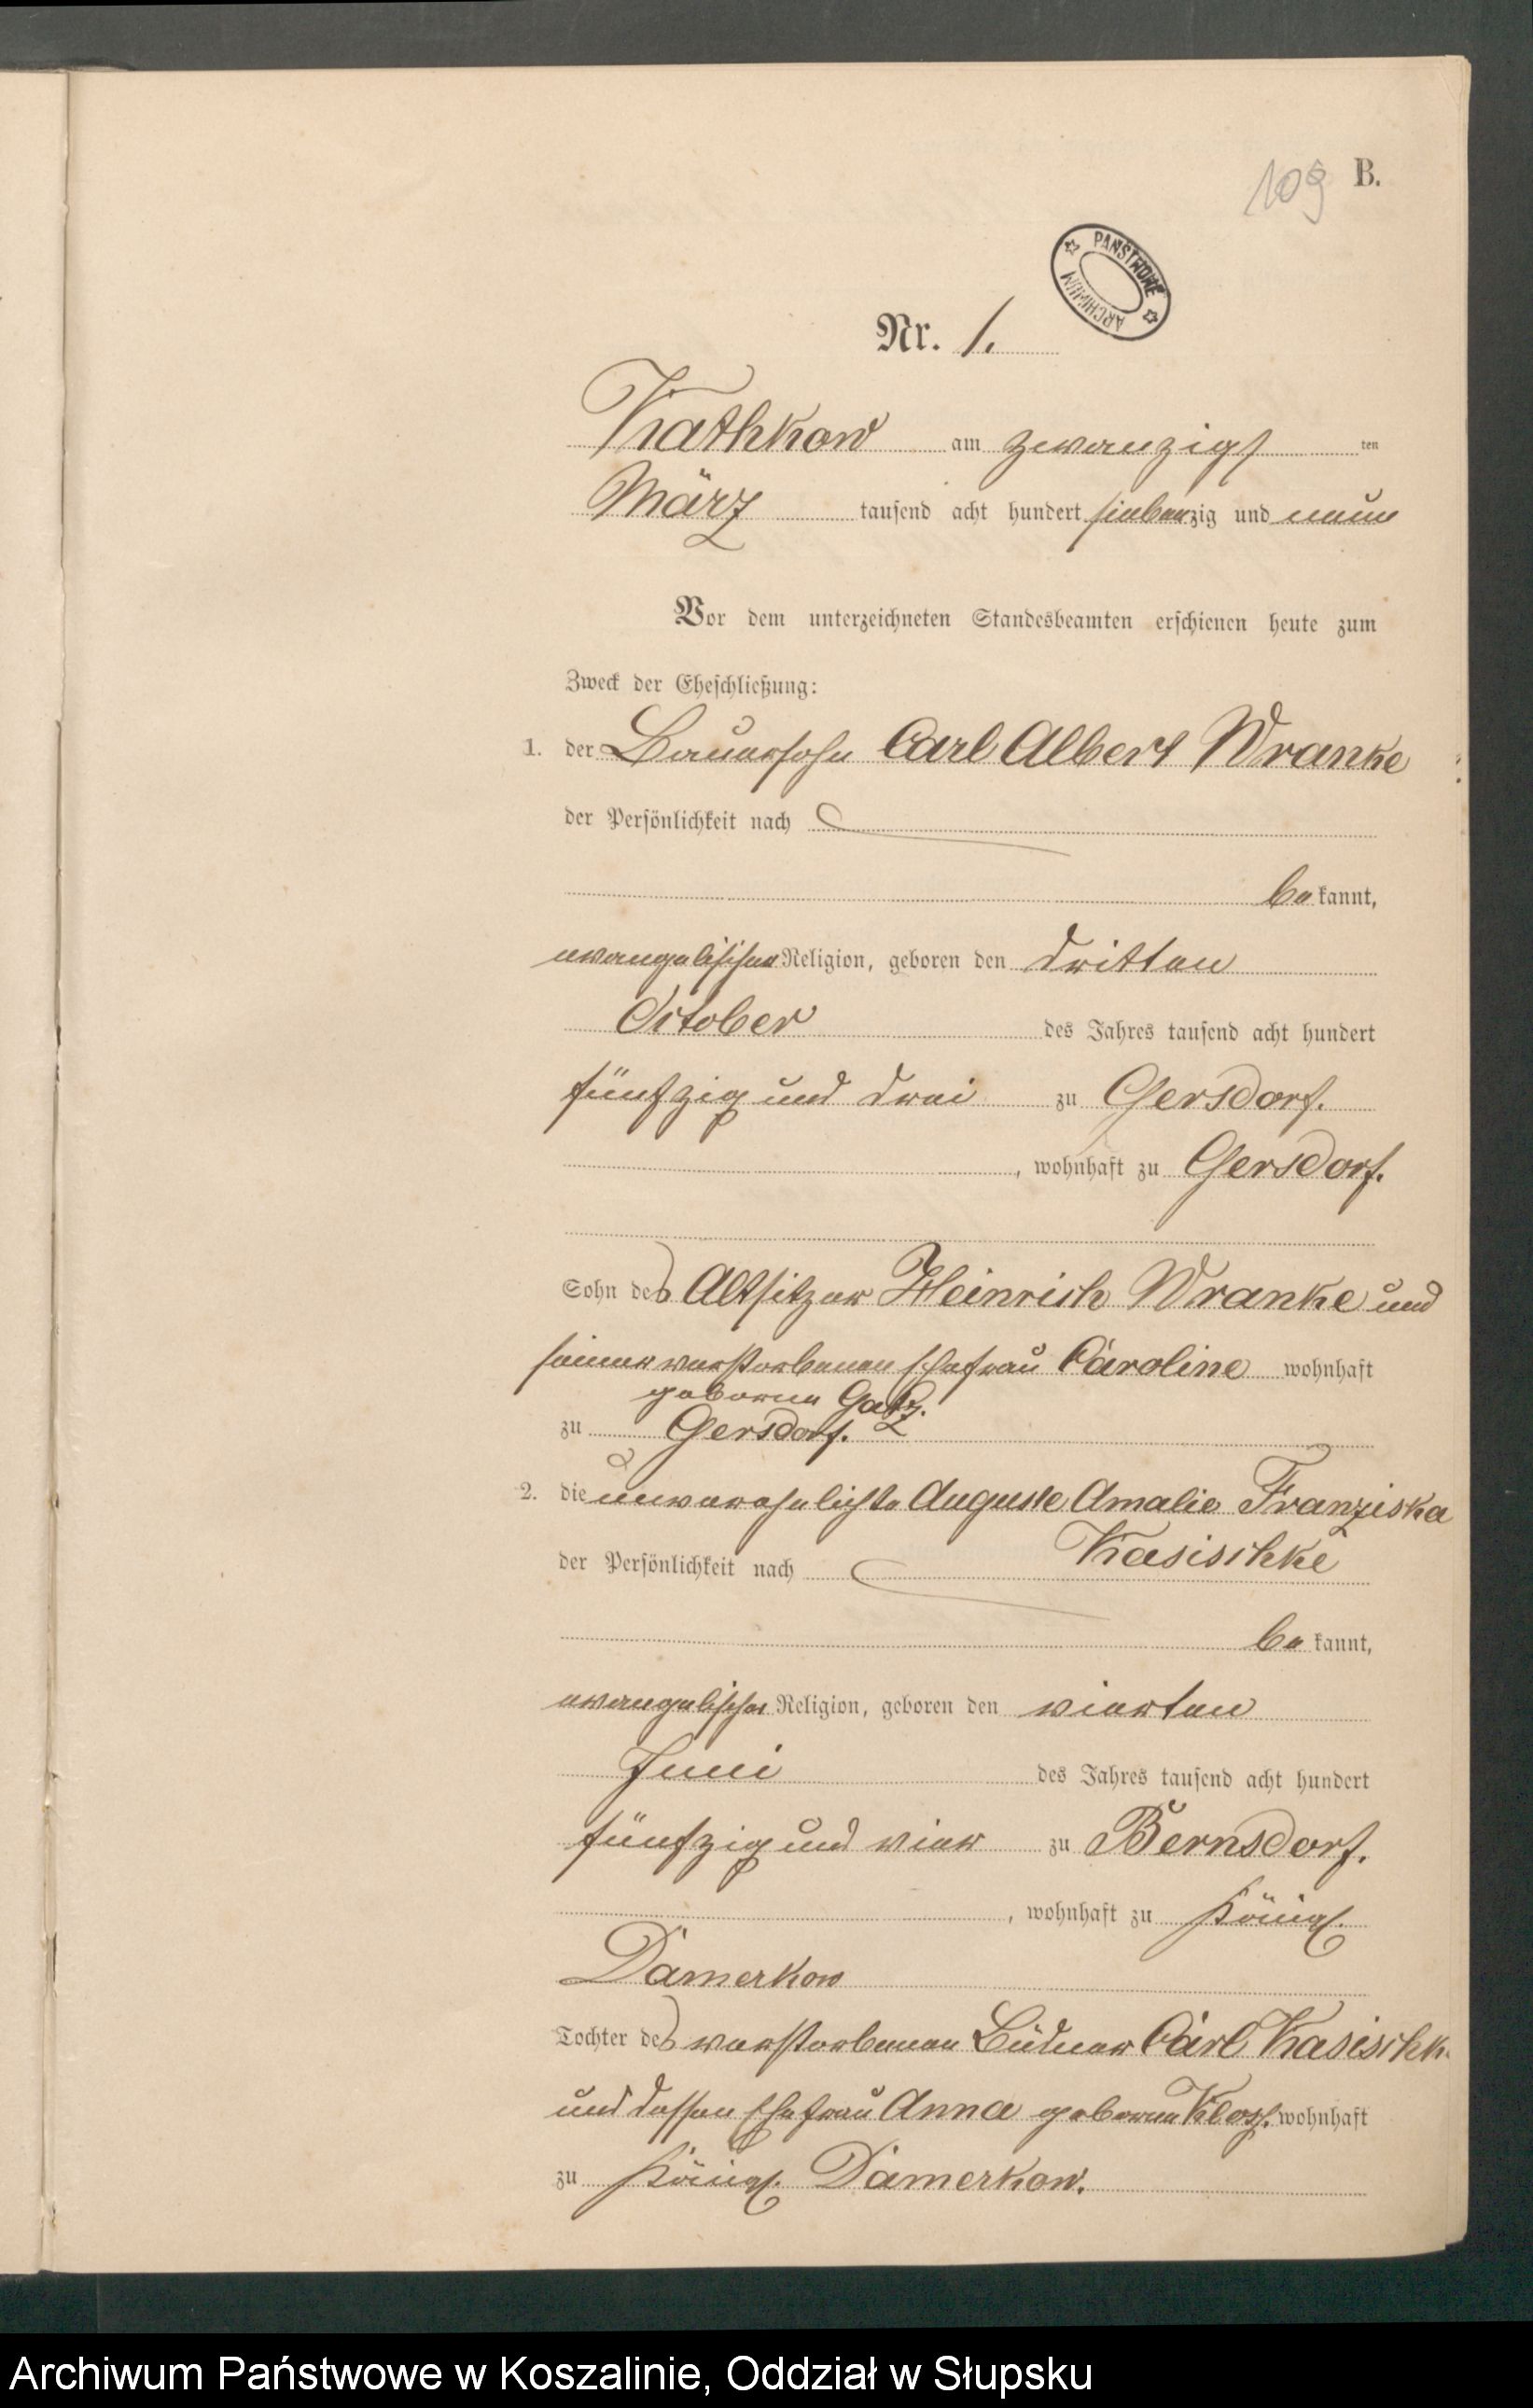 109 B.
PAŃSTWOWE ARCHIWUM
Nr. 1.
Kathkow am zwanzigsten
März tausend acht hundert siebenzig und neun
Vor dem unterzeichneten Standesbeamten erschienen heute zum
Zweck der Eheschließung:
1. der Bauersohn Carl Albert Wranke
der Persönlichkeit nach
bekannt,
evangelischer Religion, geboren den dritten
October des Jahres tausend acht hundert
fünfzig und drei zu Gersdorf.
, wohnhaft zu Gersdorf.
Sohn des Altsitzer Heinrich Wranke und
seiner verstorbenen Ehefrau Caroline wohnhaft
geborene Gatz.
zu Gersdorf.
2. die unverehelichte Auguste Amalie Franziska
Kasischke
der Persönlichkeit nach
bekannt,
evangelischer Religion, geboren den vierten
Juni des Jahres tausend acht hundert
fünfzig und vier zu Bernsdorf.
, wohnhaft zu Königl.
Damerkow
Tochter des verstorbenen Büdner Carl Kasischk
und dessen Ehefrau Anna geborene wohnhaft
zu Königl. Damerkow.
Archiwum Państwowe w Koszalinie, Oddział w Słupsku